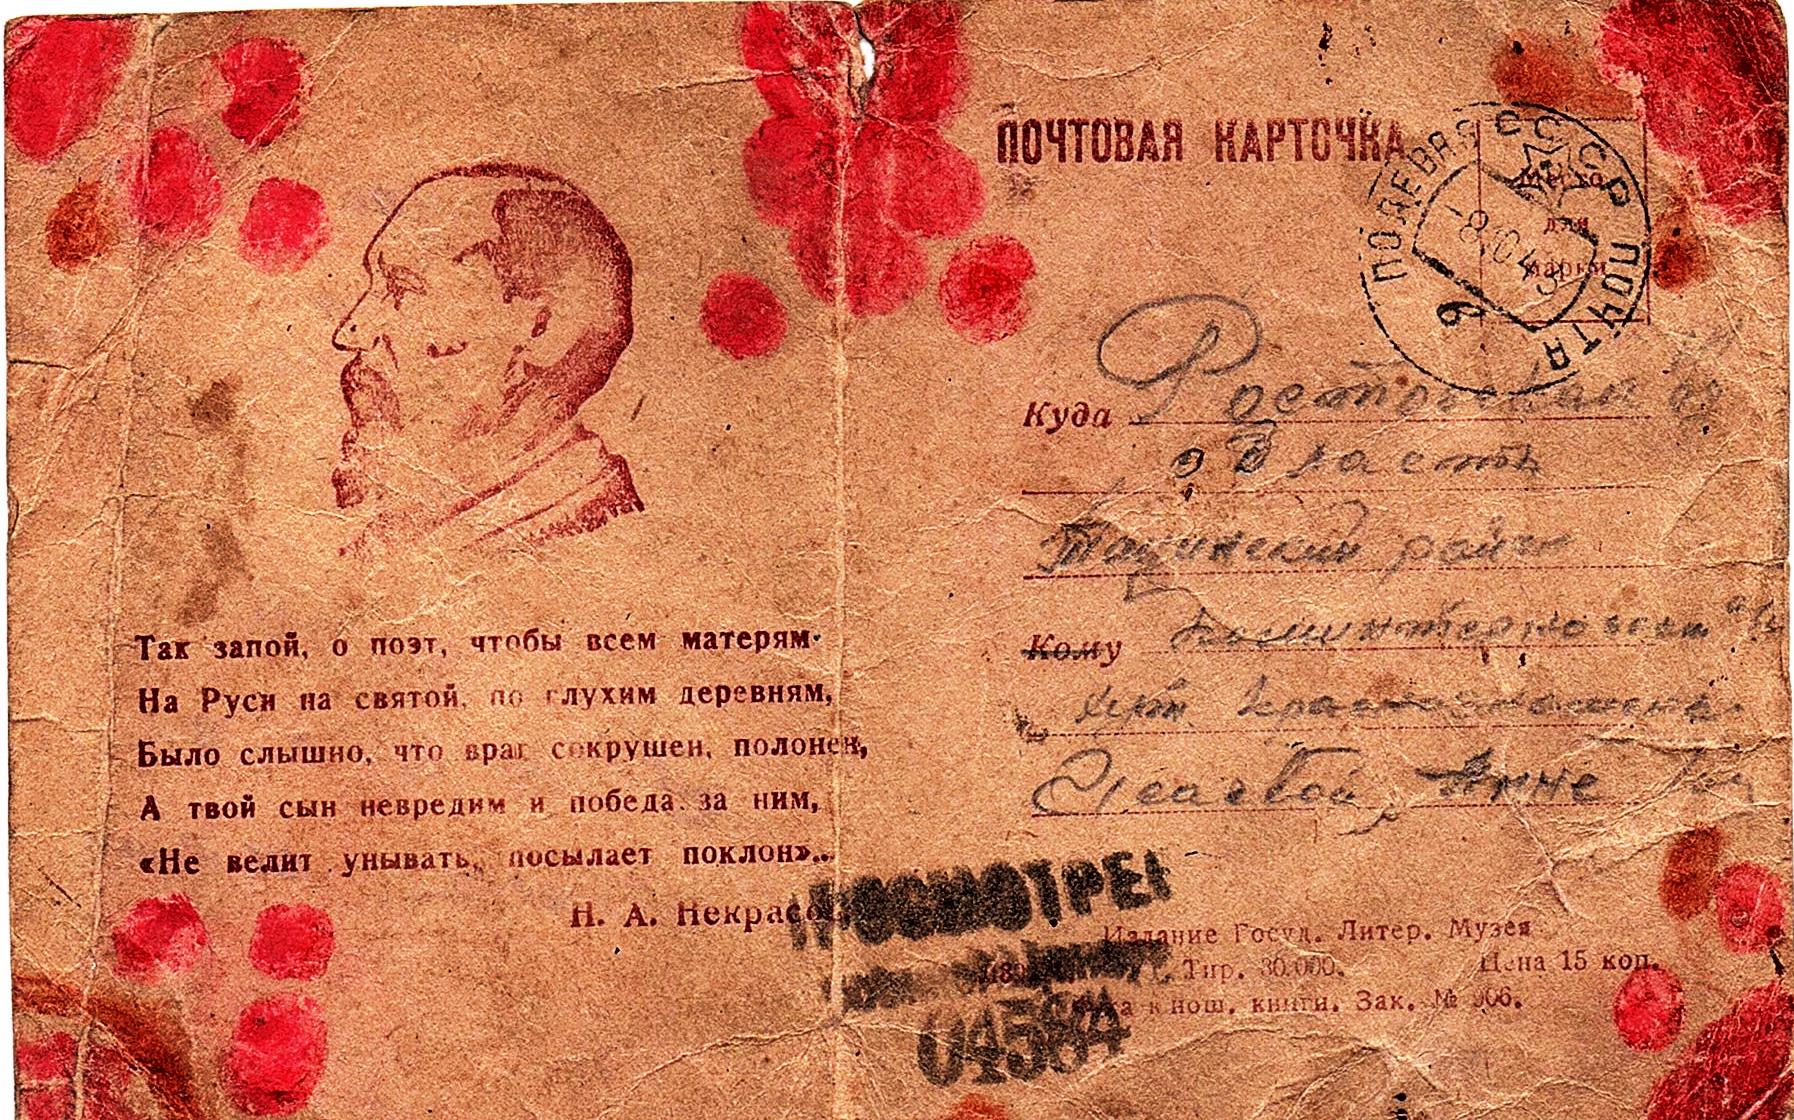 ПОЧТОВАЯ КАРТОЧКА
ПОЛЕВАЯ СССР ПОЧТА
Место
для
марки
-8.10.43
Куда Ростовская
область
Тацинский район
Кому
Анне
Так запой, о поэт, чтобы всем матерям
На Руси на святой, по глухим деревням,
Было слышно, что враг сокрушен, полонен,
А твой сын невредим и победа за ним,
«Не велит унывать, посылает поклон»...
Н. А. Некрасов
ПРОСМОТРЕНО
04584
Издание Госуд. Литер. Музея
Тир. 30.000. Цена 15 коп.
книги. Зак. № 906.